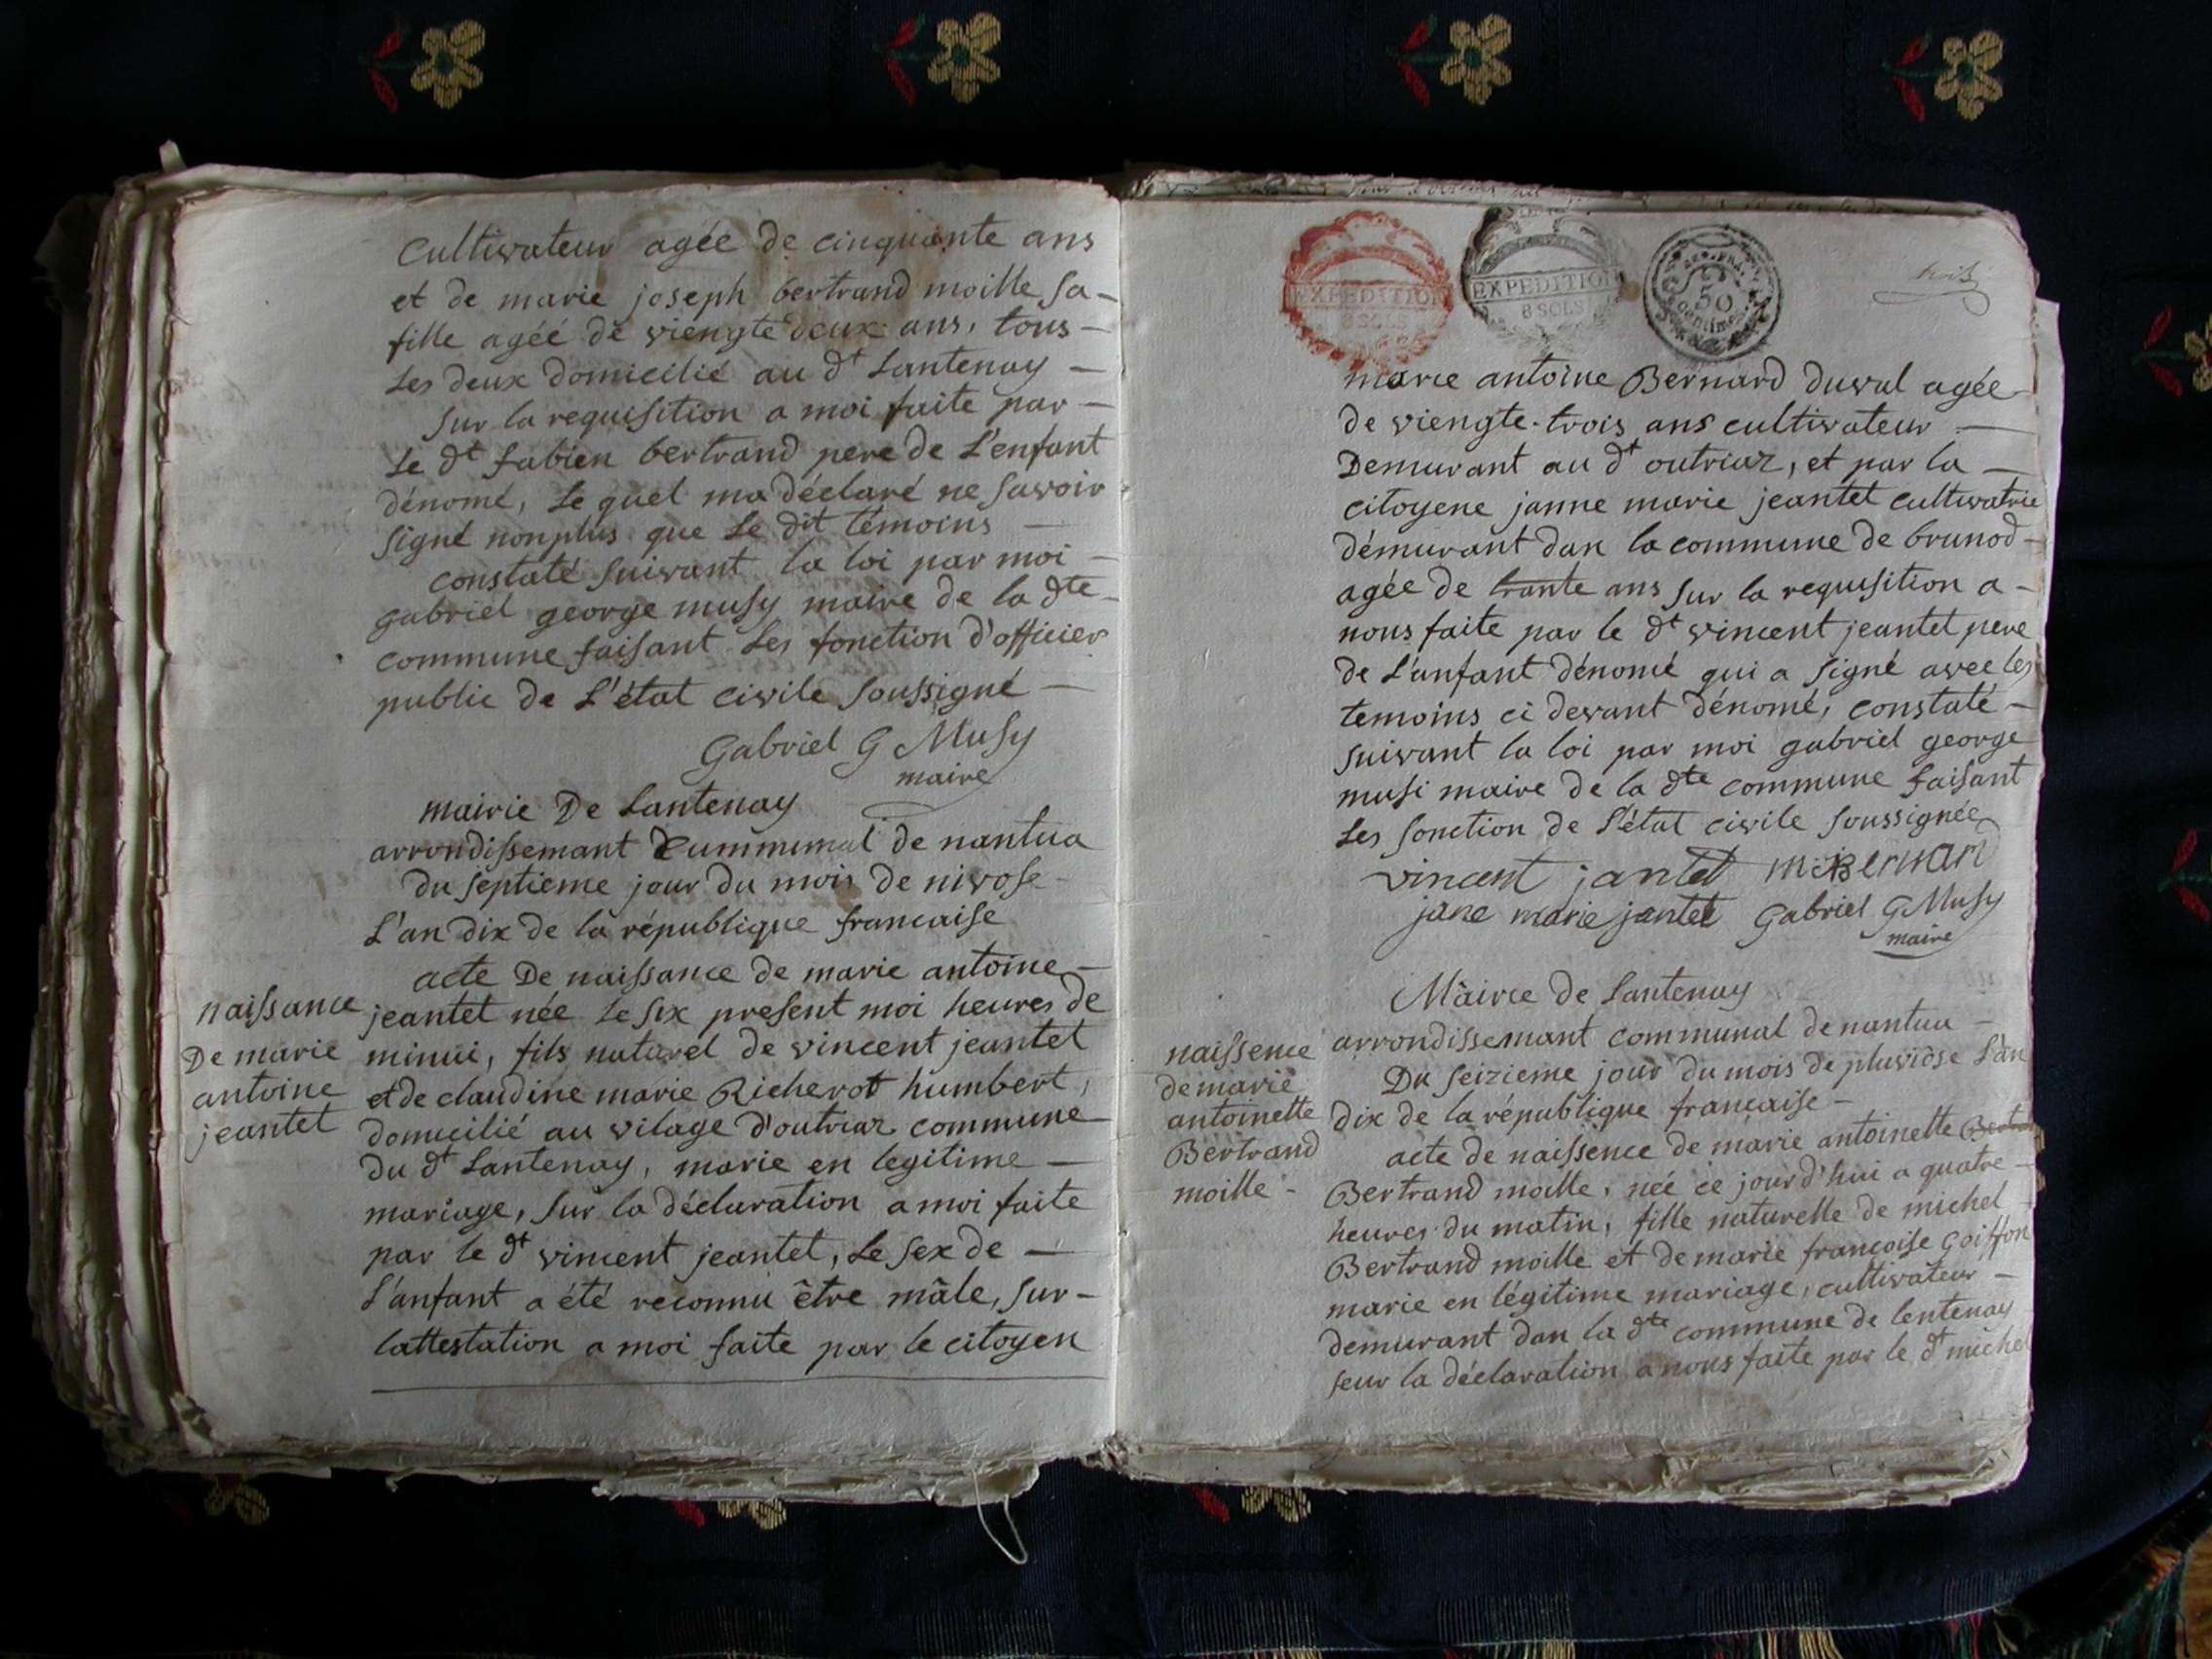 Cultivateur agée de cinquante ans
et de marie joseph bertrand moille sa-
fille agéé de viengte deux ans, tous-
les deux domicilié au dt Lantenay -
sur la requisition a moi faite par -
le dt fabien bertrand pere de L'enfant
dénomé, le quel ma déclaré ne savoir
signé nonplus que le dit témoins -
constaté suivant la loi par moi -
gabriel george musy maire de la dte -
commune faisant les fonction d'officier
public de L'état civile soussigné -
Gabriel G Musy
maire
mairie De Lantenay
arrondissemant Cummunal de nantua
du septieme jour du mois de nivose -
L'an dix de la république francaise
naissance
De marie
antoine
jeantet
acte De naissance de marie antoine -
jeantet née le six present moi heures de
minui, fils naturel de vincent jeantet
et de claudine marie Richerot humbert,
domicilié au vilage d'outriaz commune
du dt Lantenay, marie en legitime -
mariage, sur la déclaration a moi faite
par le dt vincent jeantet, le sex de -
L'anfant a été reconnu être mâle, sur -
lattestation a moi faite par le citoyen
EXPEDITION
8 SOLS
EXPEDITION
8 SOLS
REP. FRA.
50
centimes
trois
marie antoine Bernard duval agée
de viengte-trois ans cultivateur -
Demurant au dt outriaz, et par la -
citoyene janne marie jeantet cultivatrie
démurant dan la commune de brunod -
agée de trante ans sur la requisition a -
nous faite par le dt vincent jeantet pere
de L'anfant dénomé qui a signé avec les
temoins ci devant dénomé, constaté -
suivant la loi par moi gabriel george
musi maire de la dte commune faisant
les fonction de L'état civile soussignée
vincent jantet m:Bernard
jane marie jantet Gabriel G Musy
maire
Mairie de Lantenay
arrondissemant communal de nantua -
Du seizieme jour du mois de pluviose L'an
dix de la république francaise -
naissence
de marie
antoinette
Bertrand
moille -
acte de naissence de marie antoinette
Bertrand moille, néé ce jourd'hui a quatre -
heures du matin, fille naturelle de michel -
Bertrand moille et de marie françoise goiffon
marie en légitime mariage, cultivateur -
demurant dan la dte commune de lentenay
seur la déclaration a nous faite par le dt michel